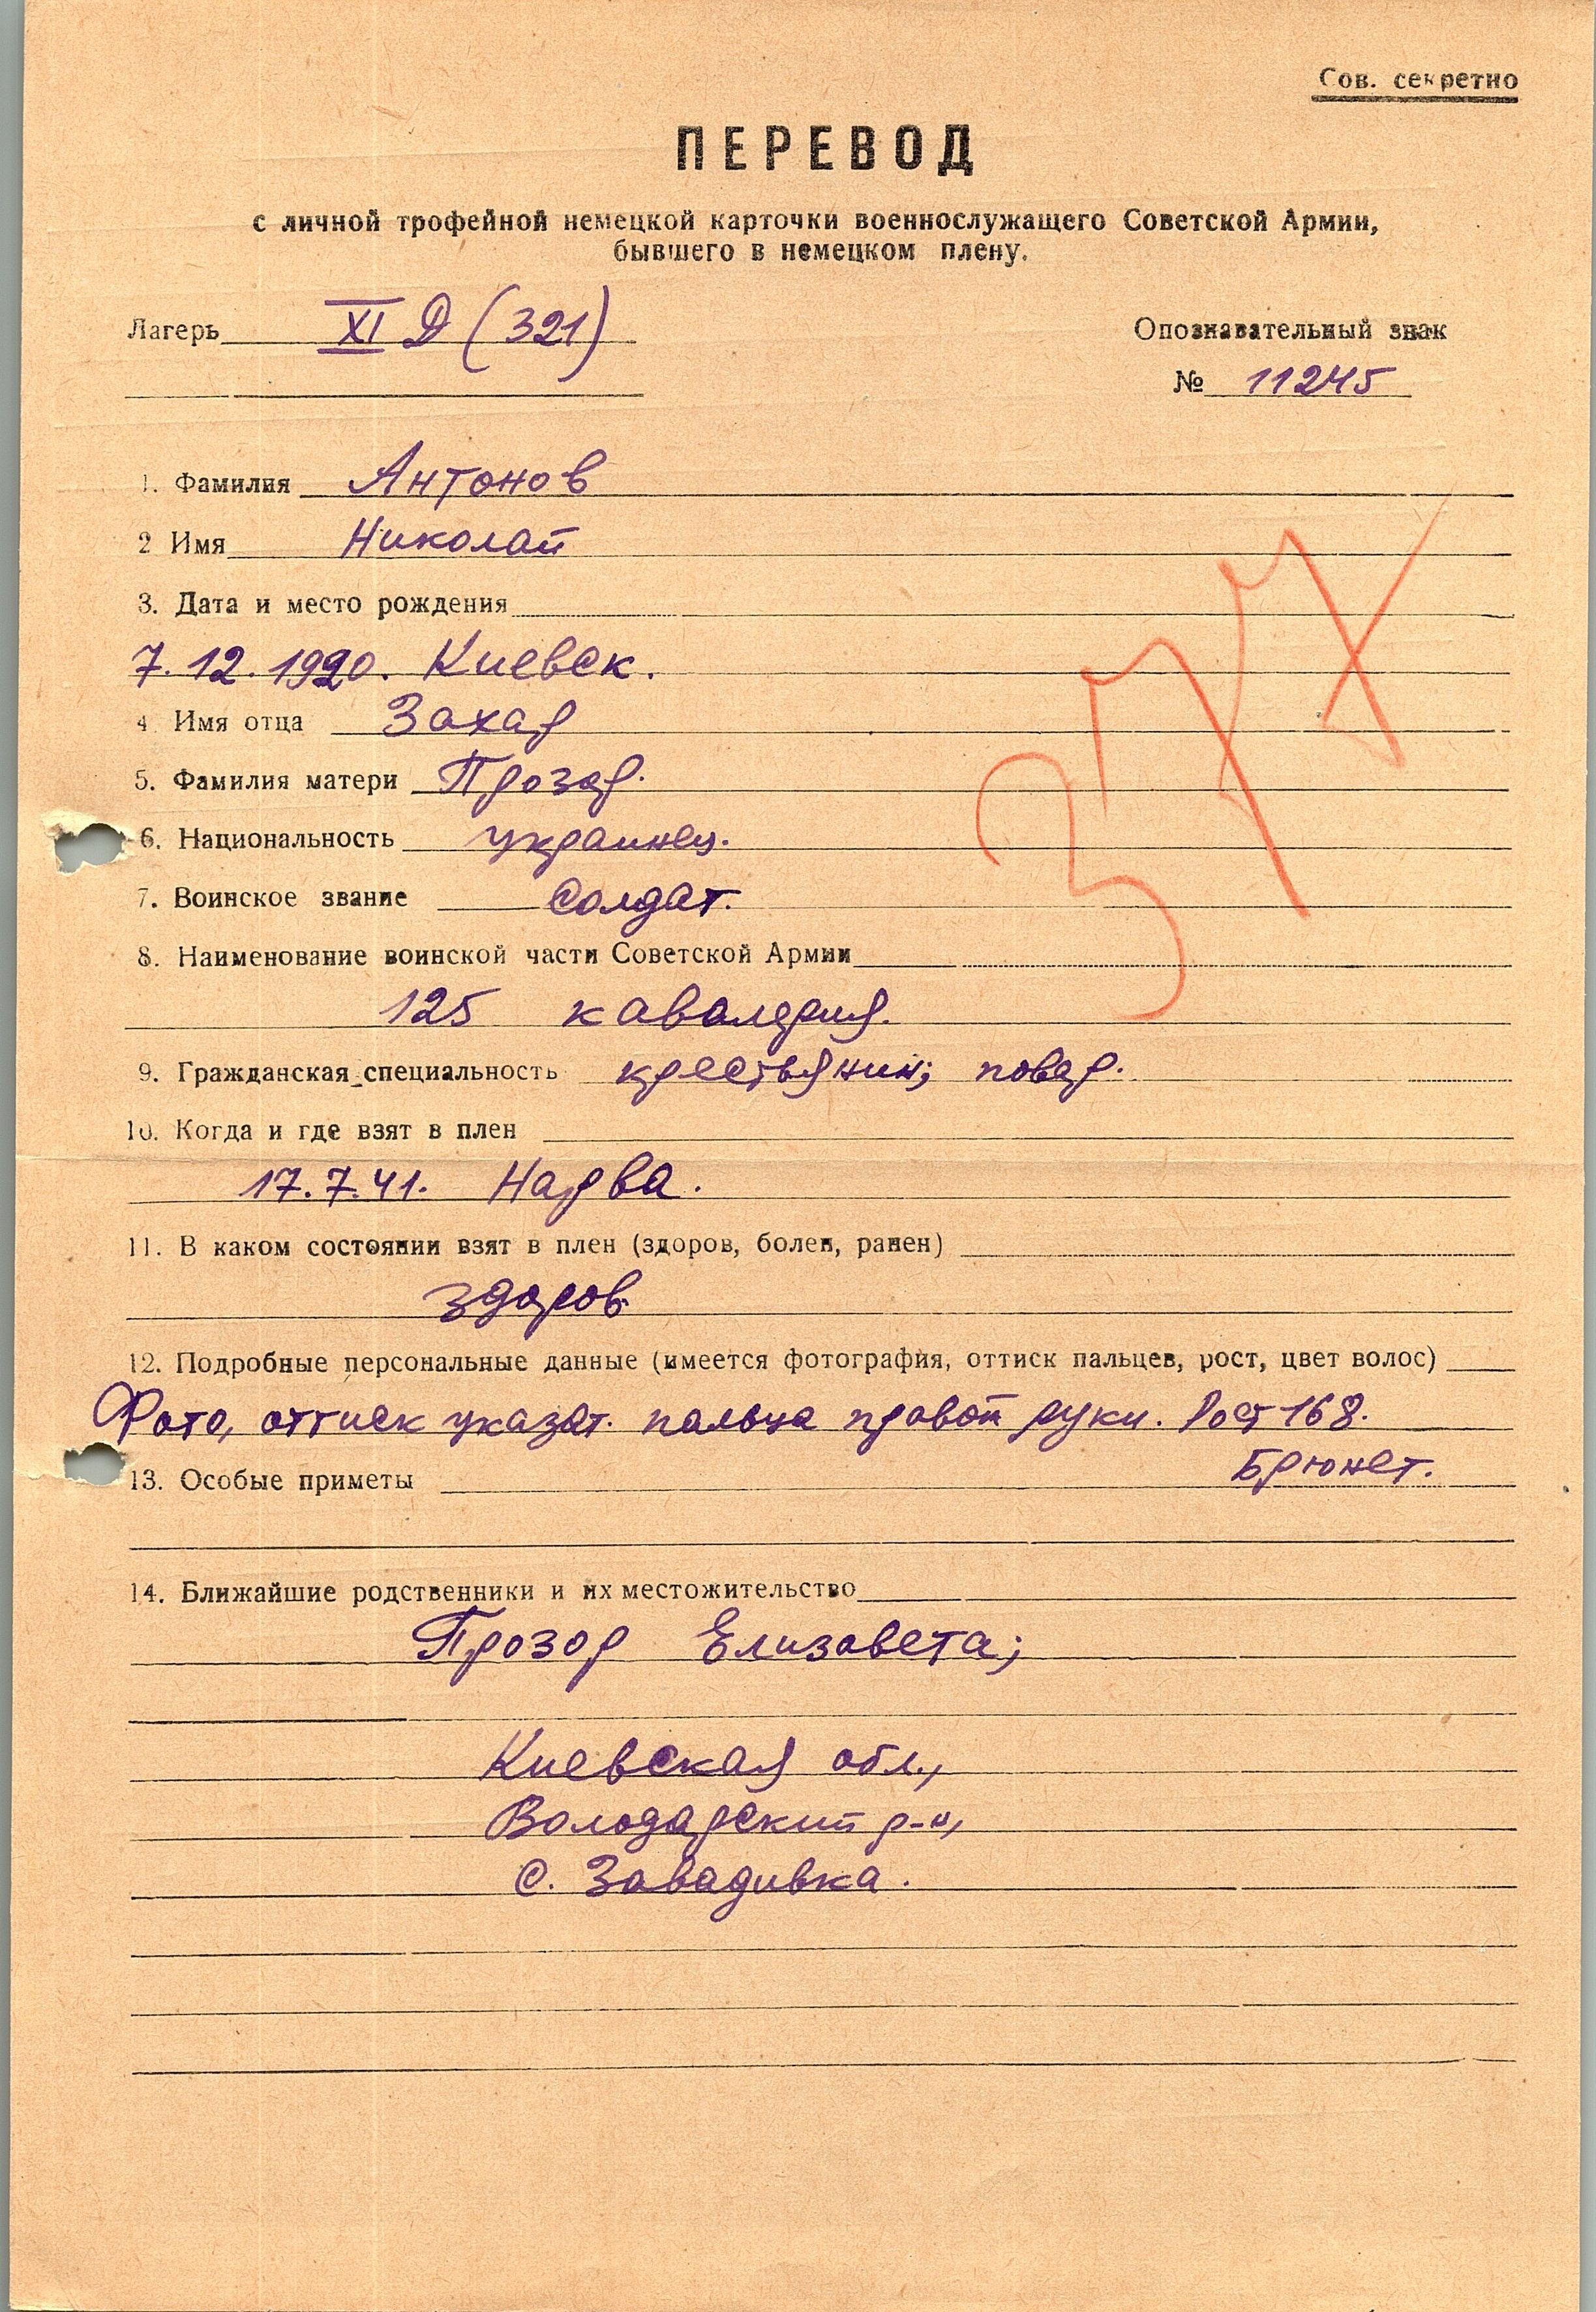 Сов. секретно
ПЕРЕВОД
с личной трофейной немецкой карточки военнослужащего Советской Армии,
бывшего в немецком плену.
Лагерь XI Д (321)
Опознавательный знак
№ 11245
1. Фамилия Антонов
2 Имя Николай
3. Дата и место рождения
7.12.1920. Киевск.
4 Имя отца Захар
5. Фамилия матери Прозар.
6. Национальность украинец.
7. Воинское звание Солдат.
8. Наименование воинской части Советской Армии
125 кавалерия.
9. Гражданская специальность крестьянин; повар.
10. Когда и где взят в плен
17.7.41. Нарва.
11. В каком состоянии взят в плен (здоров, болен, ранен)
здоров.
12. Подробные персональные данные (имеется фотография, оттиск пальцев, рост, цвет волос)
Фото, оттиск указат. пальца правой руки. Рост 168.
Брюнет.
13. Особые приметы
14. Ближайшие родственники и их местожительство
Прозор Елизавета;
Киевская обл.,
Володарский р-н,
с. Завадивка.